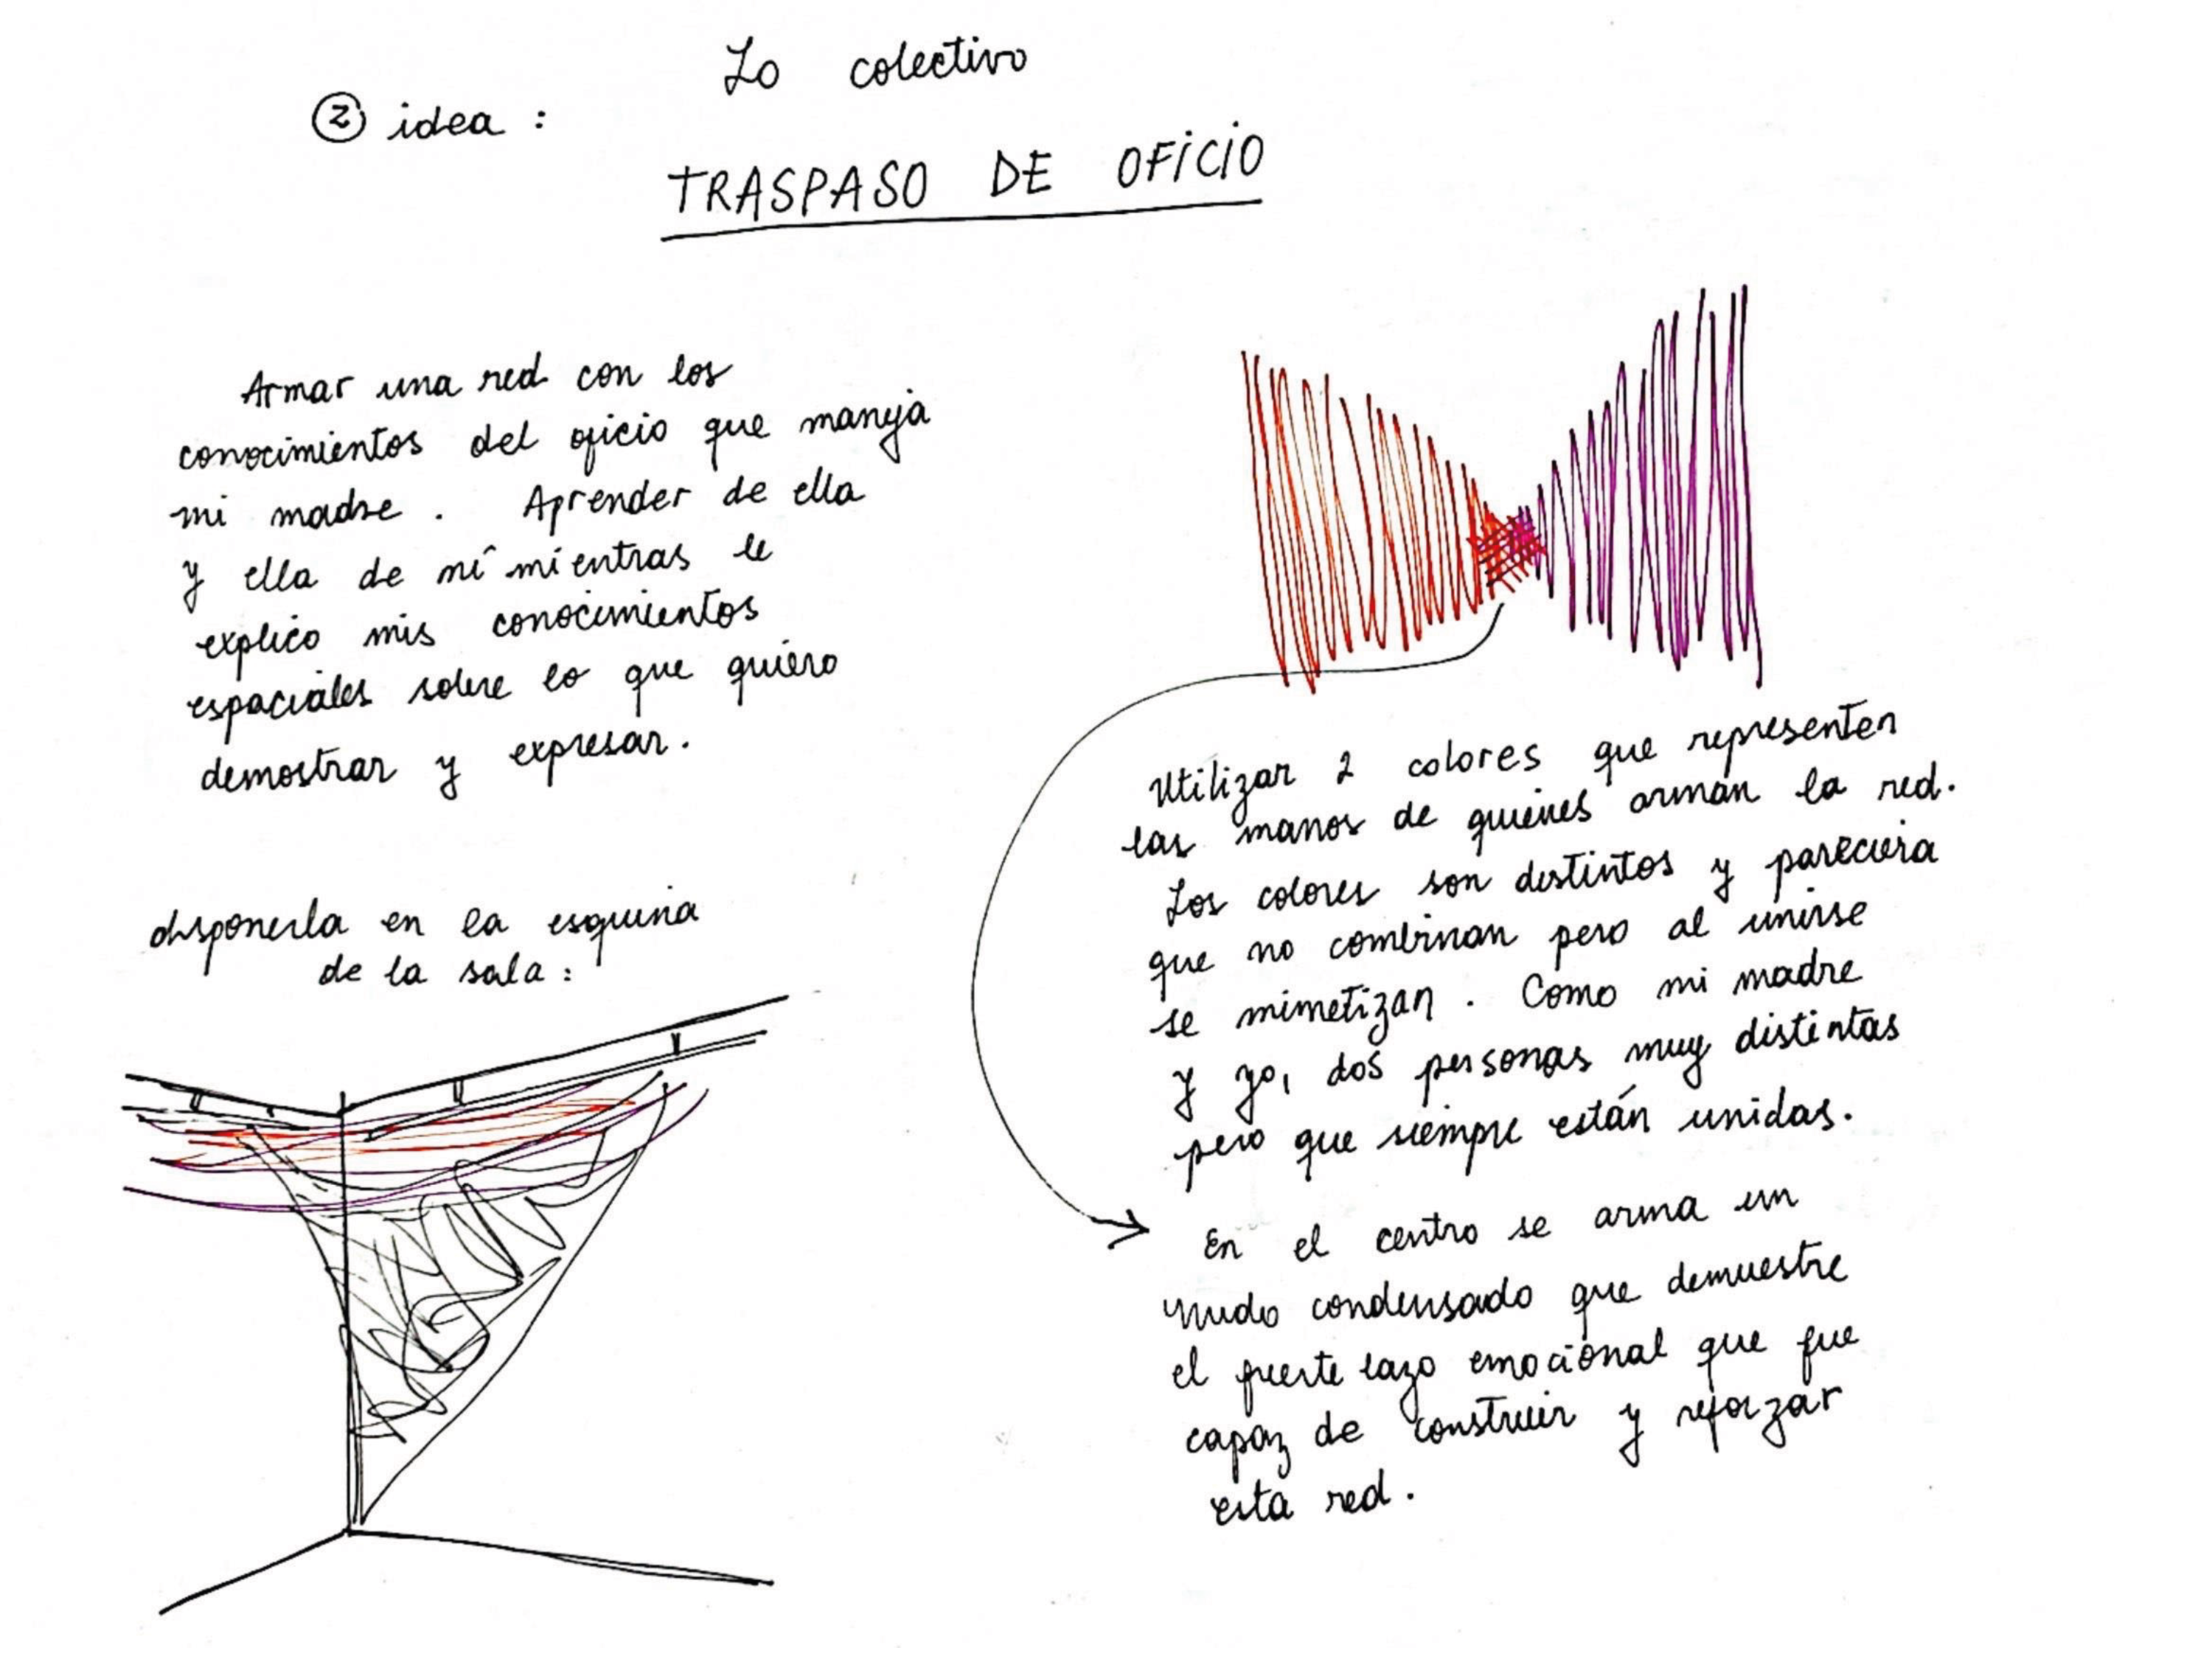 Lo colectivo
② idea :
TRASPASO DE OFICIO
Armar una red con los
conocimientos del oficio que maneja
mi madre . Aprender de ella
y ella de mí mientras le
explico mis conocimientos
espaciales sobre lo que quiero
demostrar y expresar.
disponerla en la esquina
de la sala :
Utilizar 2 colores que representen
las manos de quienes arman la red.
Los colores son distintos y pareciera
que no combinan pero al unirse
se mimetizan . Como mi madre
y yo, dos personas muy distintas
pero que siempre están unidas.
En el centro se arma un
nudo condensado que demuestre
el fuerte lazo emocional que fue
capaz de construir y reforzar
esta red.